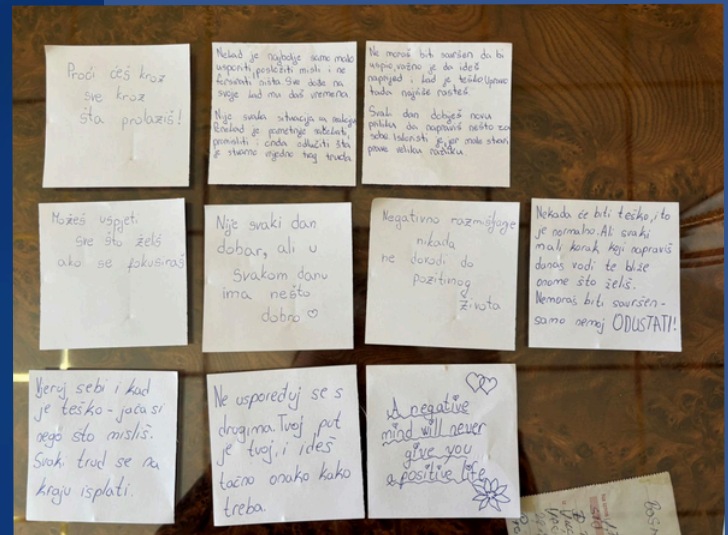 Proći ćeš kroz
sve kroz
šta prolaziš!
Nekad je najbolje samo malo
usporiti, posložiti misli i ne
forsirati ništa. Sve dođe na
svoje kad mu daš vremena.
Nije svaka situacija za
Ponekad je pametnije sačekati,
promisliti i onda odlučiti šta
je stvarno vrijedno tvog truda.
Ne moraš biti savršen da bi
uspio, važno je da ideš
naprijed i kad je teško. Upravo
tada najviše rasteš.
Svaki dan dobiješ novu
priliku da napraviš nešto za
sebe. Iskoristi je, jer male stvari
prave veliku razliku.
Možeš uspjet.
sve što želiš
ako se fokusiraš
Nije svaki dan
dobar, ali u
svakom danu
ima nešto
dobro ♡
Negativno razmišljage
nikada
ne dovodi do
pozitinog
života
Nekada će biti teško, i to
je normalno. Ali svaki
mali korak koji napraviš
danas vodi te bliže
onome što želiš.
Nemoraš biti savršen-
samo nemoj ODUSTATI!
Vjeruj sebi i kad
je teško - jača si
nego što misliš.
Svaki trud se na
kraju isplati.
Ne uspoređuj se s
drugima. Tvoj put
je tvoj, i ideš
tačno onako kako
treba.
A negative
mind will never
give you
a positive life